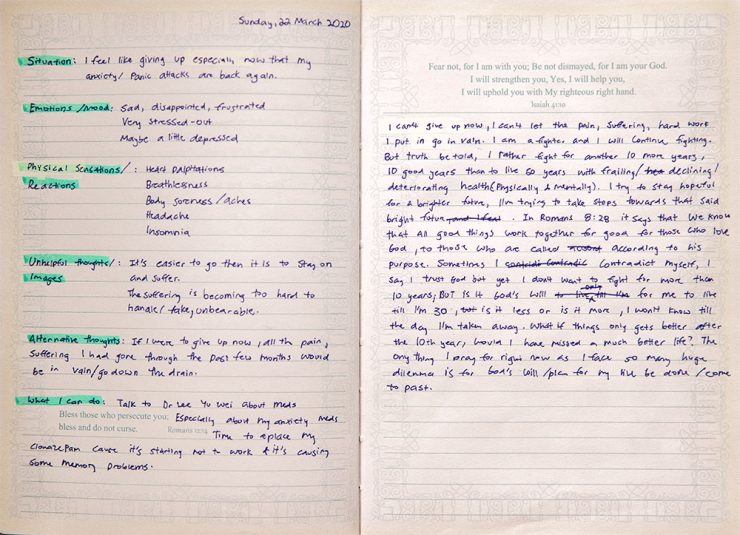 Sunday, 22 March 2020
Situation: I feel like giving up especially now that my
anxiety/ Panic attacks are back again.
Emotions/Mood: Sad, disappointed, frustrated
Very stressed-out
Maybe a little depressed
Physical Sensations/ : Heart Palpitations
Reactions Breathlessness
Body soreness/aches
Headache
Insomnia
Unhelpful thoughts/ : It's easier to go then it is to stay on
Images and suffer.
The suffering is becoming too hard to
handle/take, unbearable.
Alternative thoughts: If I were to give up now, all the pain,
suffering I had gone through the past few months would
be in vain/go down the drain.
What I can do: Talk to Dr Lee Yu Wei about meds
Bless those who persecute you; Especially about my anxiety meds
bless and do not curse. Romans 12:14 Time to replace my
Clonazepam cause it's starting not to work & it's causing
some memory problems.
Fear not, for I am with you; Be not dismayed, for I am your God.
I will strengthen you, Yes, I will help you,
I will uphold you with My righteous right hand.
Isaiah 41:10
I can't give up now, I can't let the pain, suffering, hard work
I put in go in vain. I am a fighter and I will continue fighting.
But truth be told, I rather fight for another 10 more years,
10 good years than to live 50 years with frailing/ declining/
deteriorating health (Physically & mentally). I try to stay hopeful
for a brighter future, I'm trying to take steps towards that said
bright future and I feel . In Romans 8:28 it says that we know
that all good things work together for good for those who love
God, to those who are called according to his
purpose. Sometimes I contradict myself, I
say I trust God but yet I don't want to fight for more than
10 years; BUT is it God's will to live till I'm only for me to live
till I'm 30, but is it less or is it more, I won't know till
the day I'm taken away. What if things only gets better after
the 10th year, would I have missed a much better life?. The
only thing I pray for right now as I face so many huge
dilemma is for God's will/plan for my life be done/come
to past.